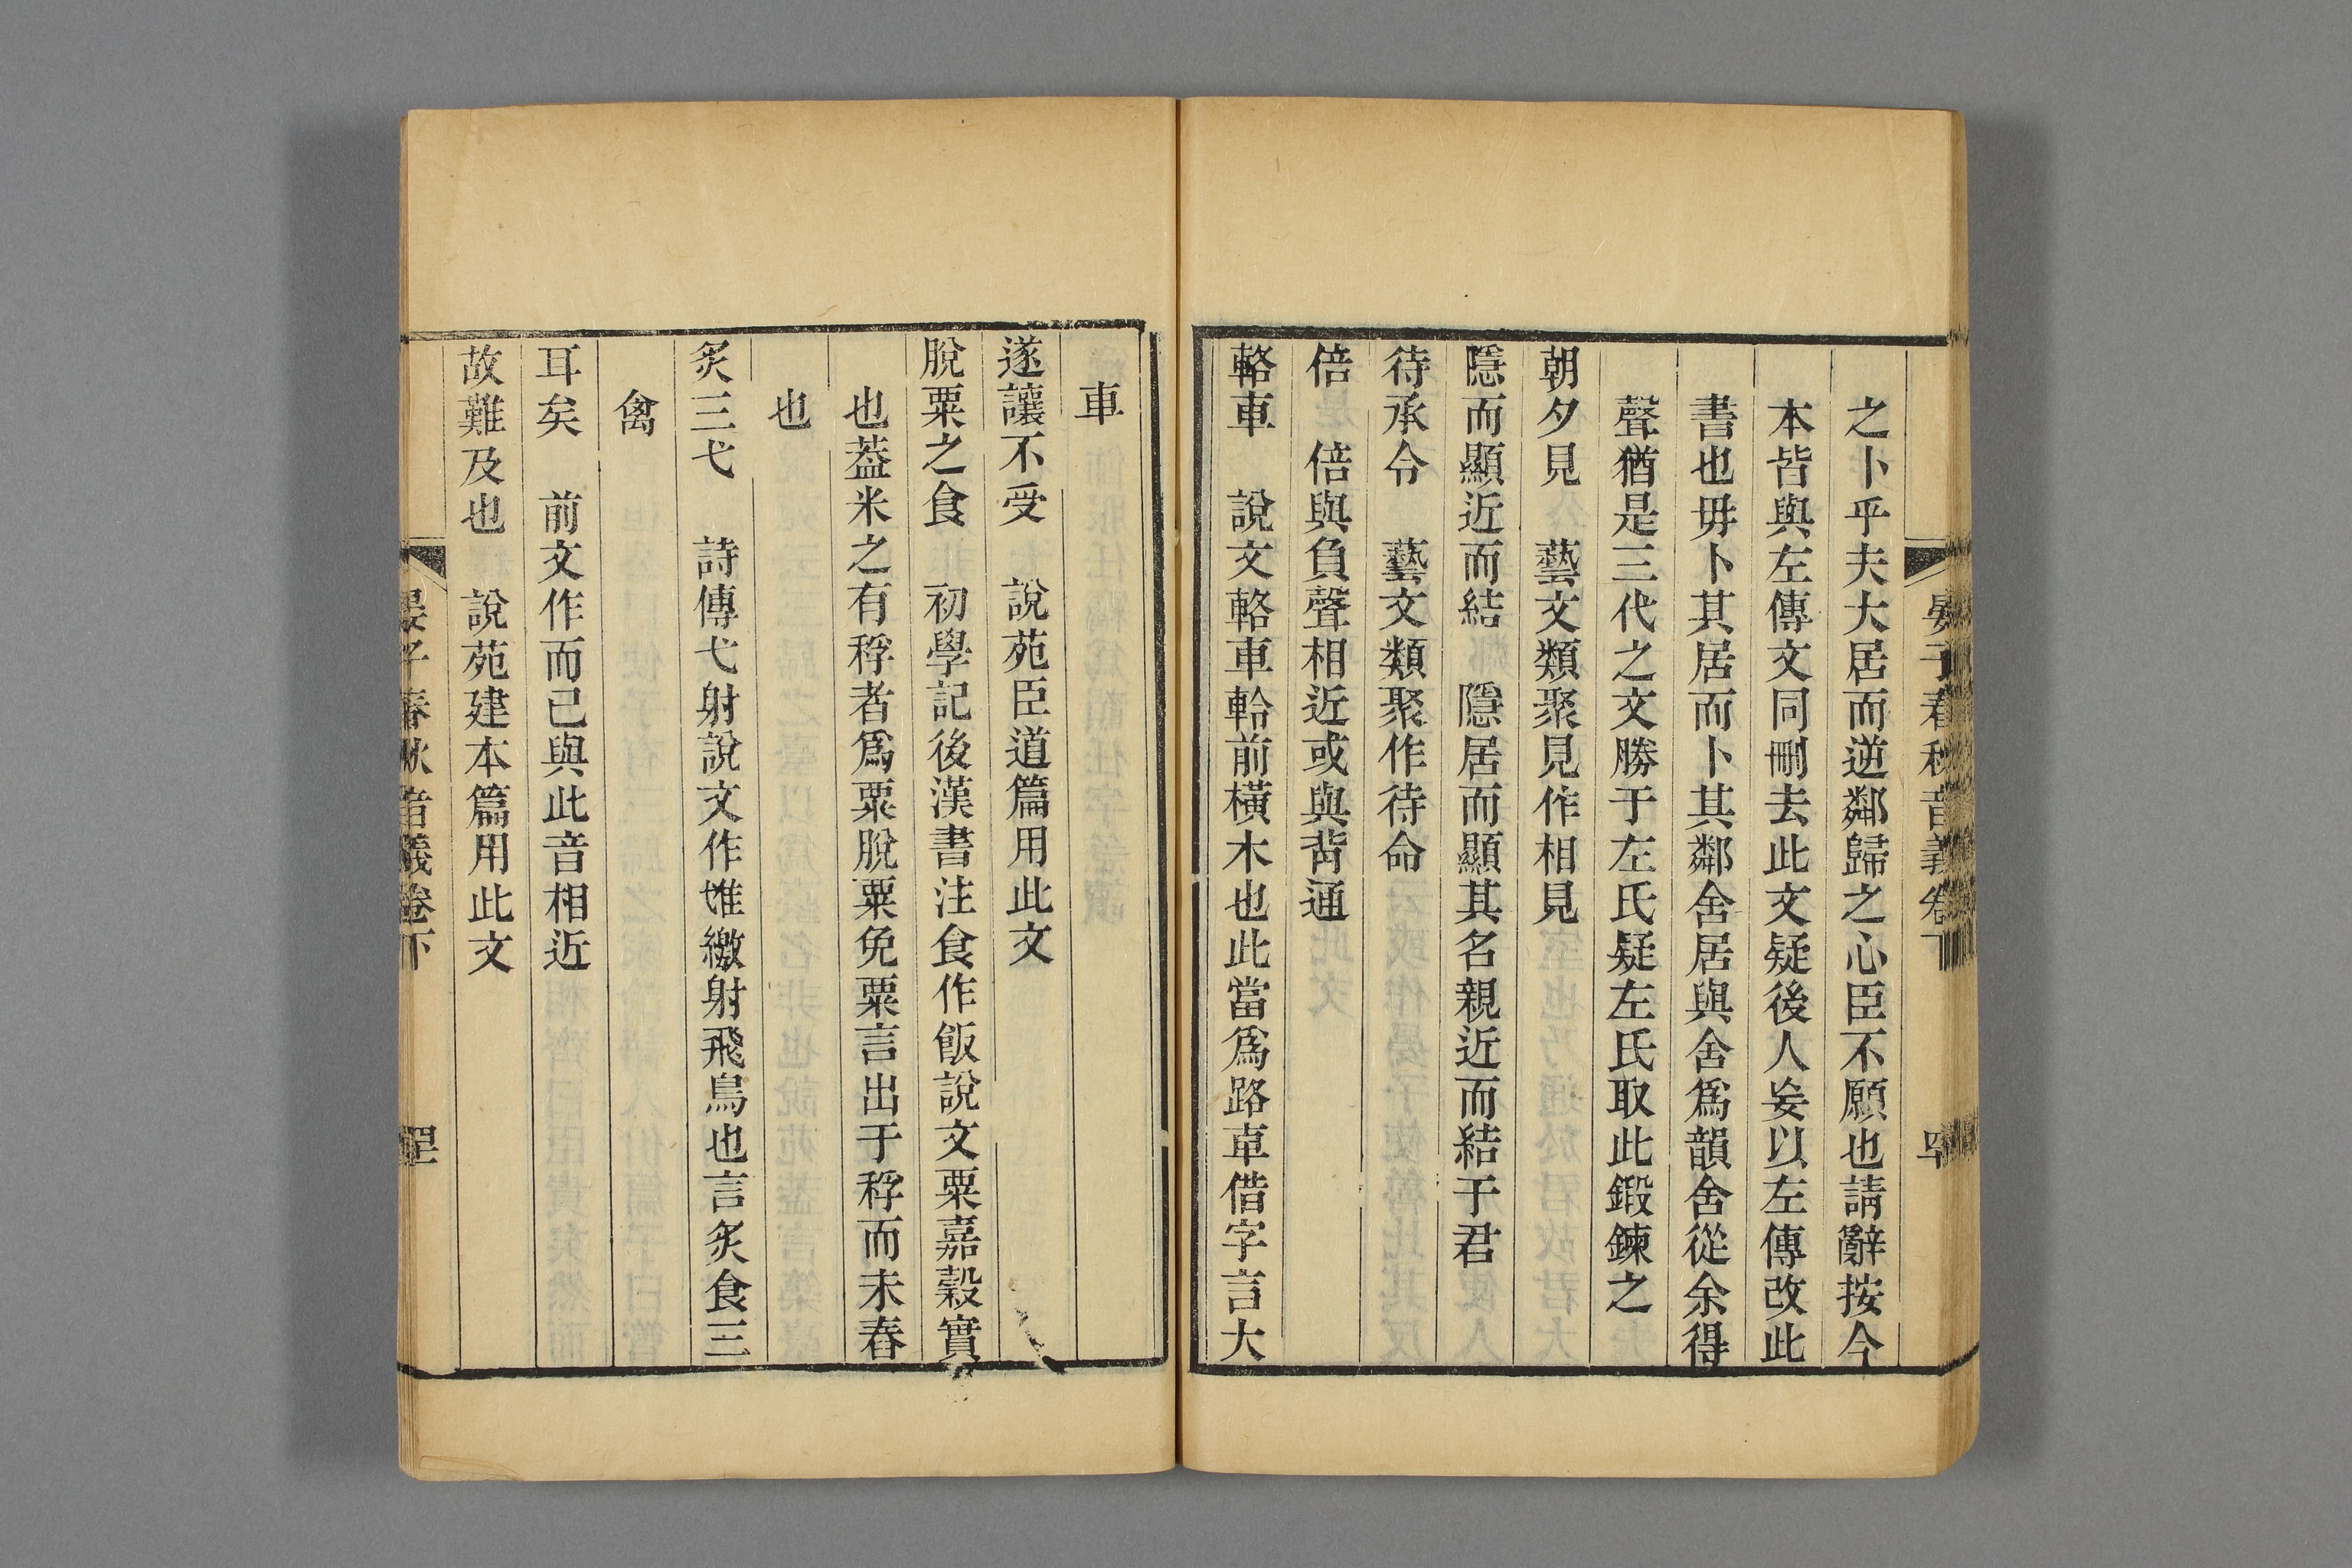 晏子春秋音義卷下
之卜乎夫大居而逆鄰歸之心臣不願也請辭按今
本皆與左傳文同刪去此文疑後人妄以左傳改此
書也毋卜其居而卜其鄰舍居與舍爲韻舍從余得
聲猶是三代之文勝于左氏疑左氏取此鍛鍊之
朝夕見　藝文類聚見作相見
隱而顯近而結　隱居而顯其名親近而結于君
待承令　藝文類聚作待命
倍　倍與負聲相近或與背通
輅車　說文輅車軨前橫木也此當爲路車借字言大
車
遂讓不受　說苑臣道篇用此文
脫粟之食　初學記後漢書注食作飯說文粟嘉穀實
也葢米之有稃者爲粟脫粟免粟言出于稃而未舂
也
炙三弋　詩傳弋射說文作隿繳射飛鳥也言炙食三
禽
耳矣　前文作而已與此音相近
故難及也　說苑建本篇用此文
晏子春秋音義卷下